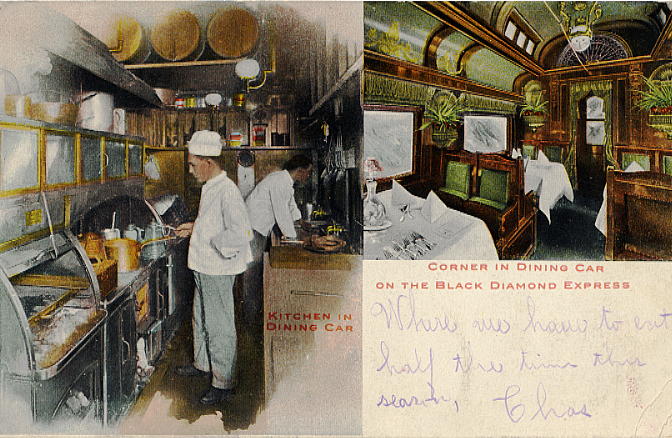 KITCHEN IN
DINING CAR
CORNER IN DINING CAR
ON THE BLACK DIAMOND EXPRESS
Where we have to eat
half the time this
season, Chas